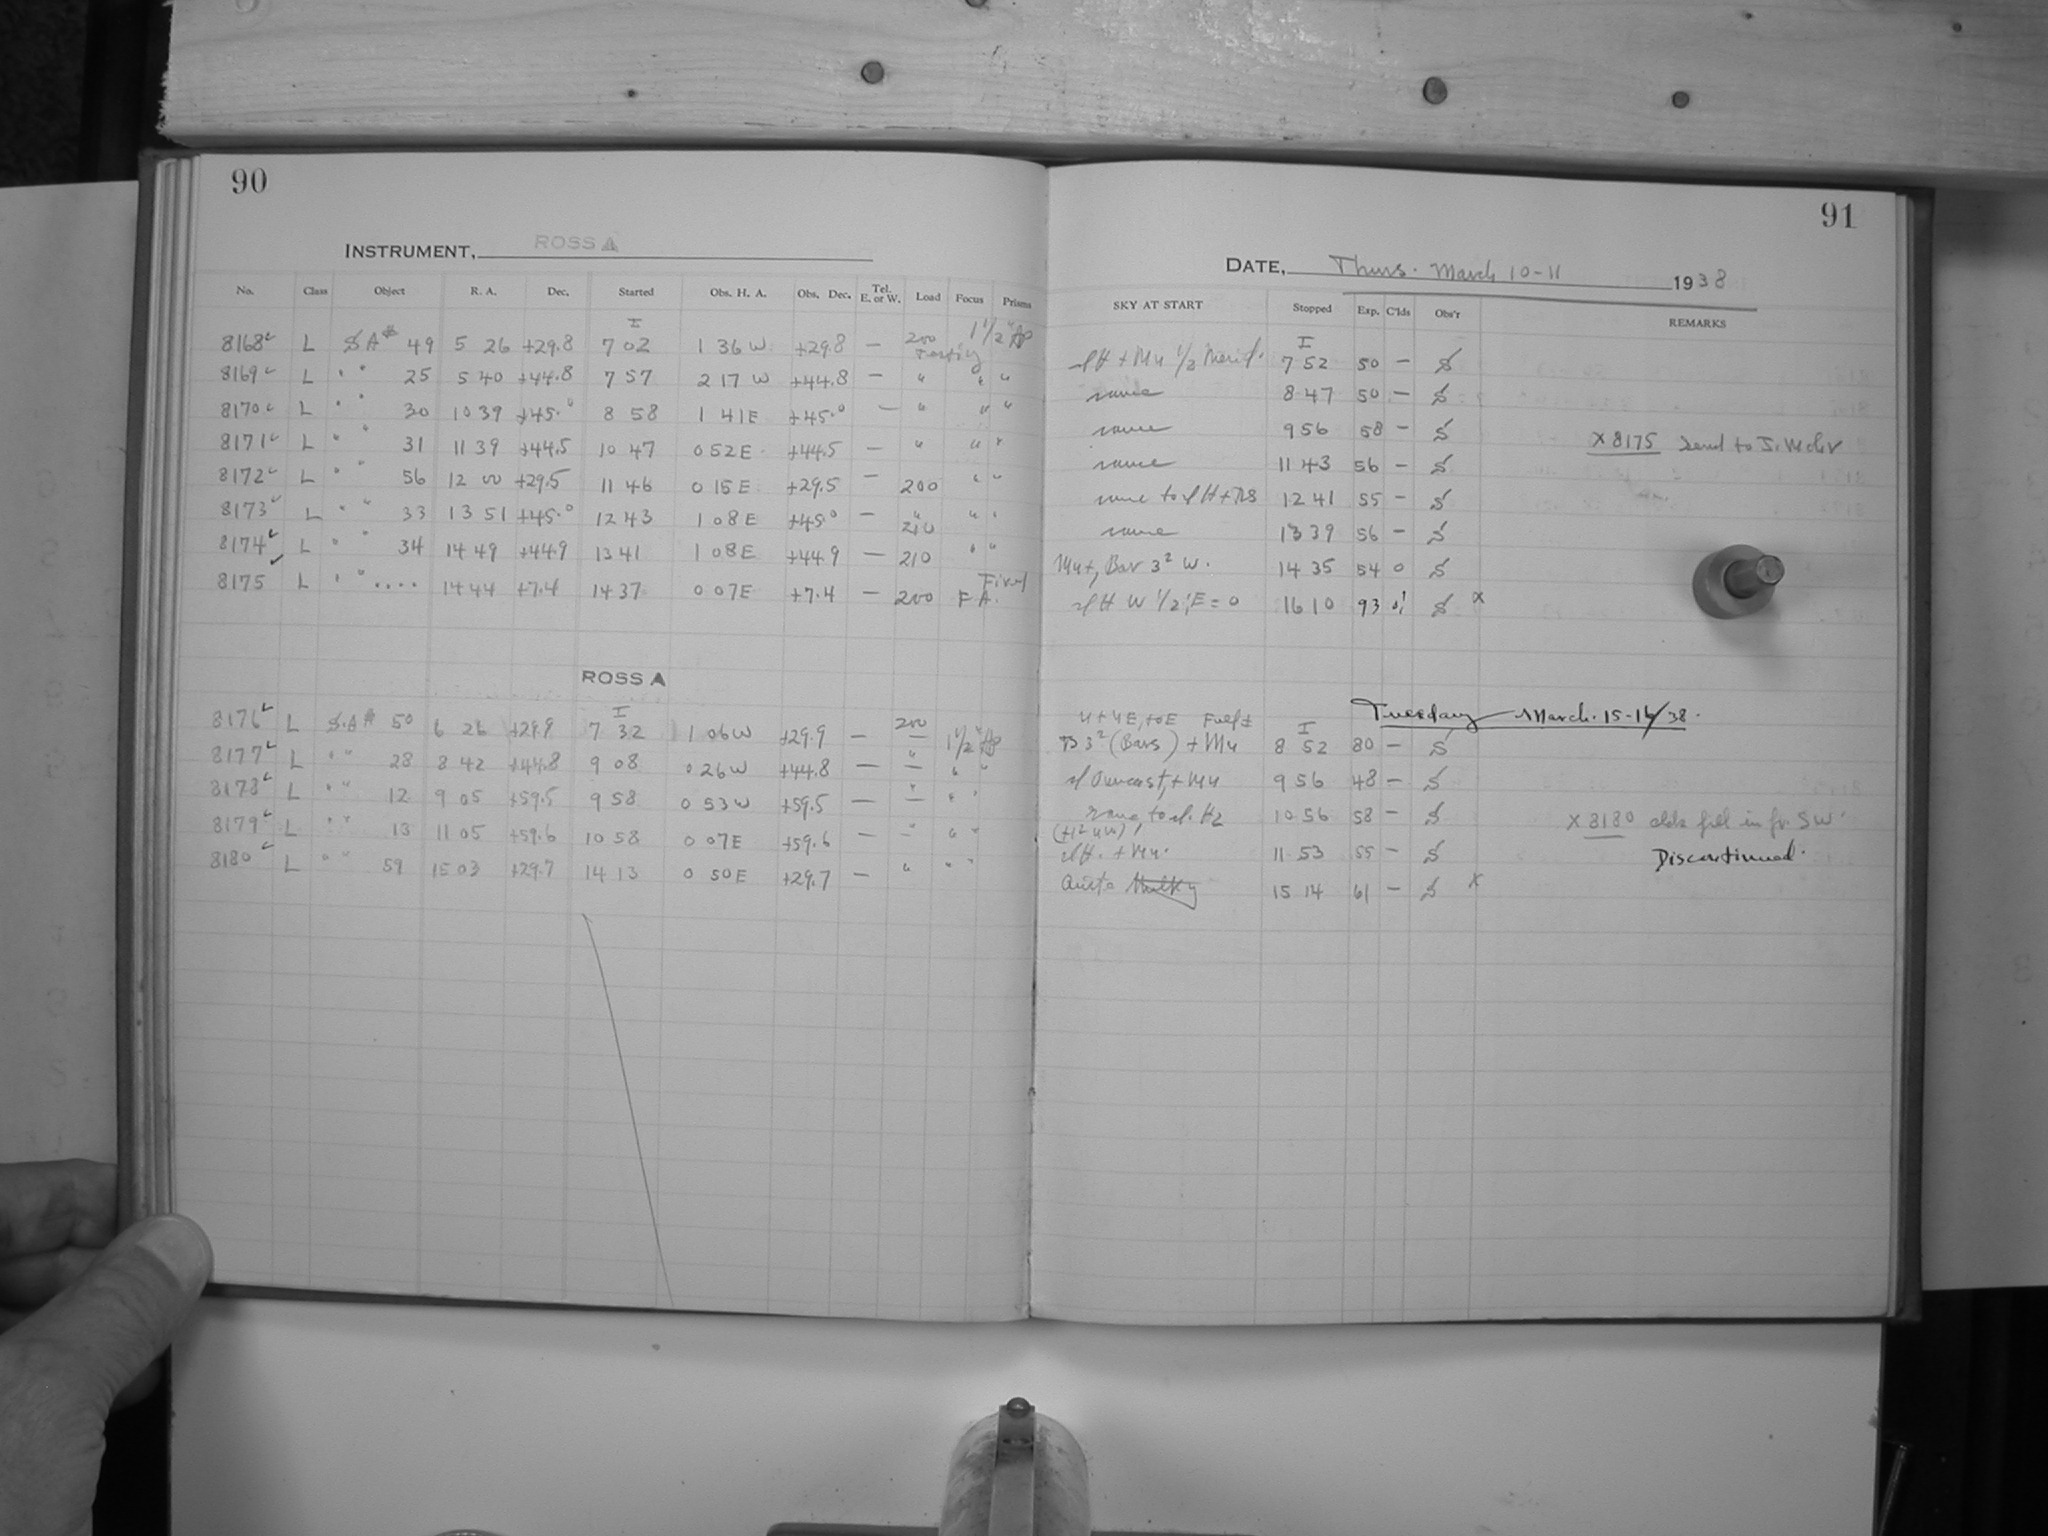 90
INSTRUMENT, ROSS A
No. Class Object R. A. Dec. Started Obs. H. A. Obs. Dec. Tel. E. or W. Load Focus Prisms
I
8168 L SA# 49 5 26 +29.8 7 02 1 36 W +29.8 — 200 1 1/2" Ap
8169 L " " 25 5 40 +44.8 7 57 2 17 W +44.8 — " " "
8170 L " " 30 10 39 +45.0 8 58 1 41 E +45.0 — " " "
8171 L " " 31 11 39 +44.5 10 47 0 52 E +44.5 — " " "
8172 L " " 56 12 00 +29.5 11 46 0 15 E +29.5 — 200 " "
8173 L " " 33 13 51 +45.0 12 43 1 08 E +45.0 — " 210 " "
8174 L " " 34 14 49 +44.9 13 41 1 08 E +44.9 — 210 " "
8175 L " " .... 14 44 +7.4 14 37 0 07 E +7.4 — 200 F.A.
ROSS A
I
8176 L S.A# 50 6 26 +29.9 7 32 1 06 W +29.9 — 200 — 1 1/2" Ap
8177 L " " 28 8 42 +44.8 9 08 0 26 W +44.8 — " — " "
8178 L " " 12 9 05 +59.5 9 58 0 53 W +59.5 — " — " "
8179 L " " 13 11 05 +59.6 10 58 0 07 E +59.6 — " " "
8180 L " " 59 15 03 +29.7 14 13 0 50 E +29.7 — " " "
91
DATE, Thurs. March 10-11 1938
SKY AT START Stopped Exp. C'lds Obs'r REMARKS
I
+ M4 1/2 Merid. 7 52 50 — S
same 8 47 50 — S
same 9 56 58 — S X 8175 Send to
same 11 43 56 — S
same to 12 41 55 — S
same 13 39 56 — S
M4+, Bar 3² W. 14 35 54 0 S
W 1/2, E = 0 16 10 93 0! S X
Tuesday March 15-16/38.
4+4E, to E
I
B 3² (Bars) + M4 8 52 80 — S
Overcast, + M4 9 56 48 — S
10 56 58 — S X 8180 clds fill in fr. SW.
+ M4. 11 53 55 — S Discontinued.
15 14 61 — S X